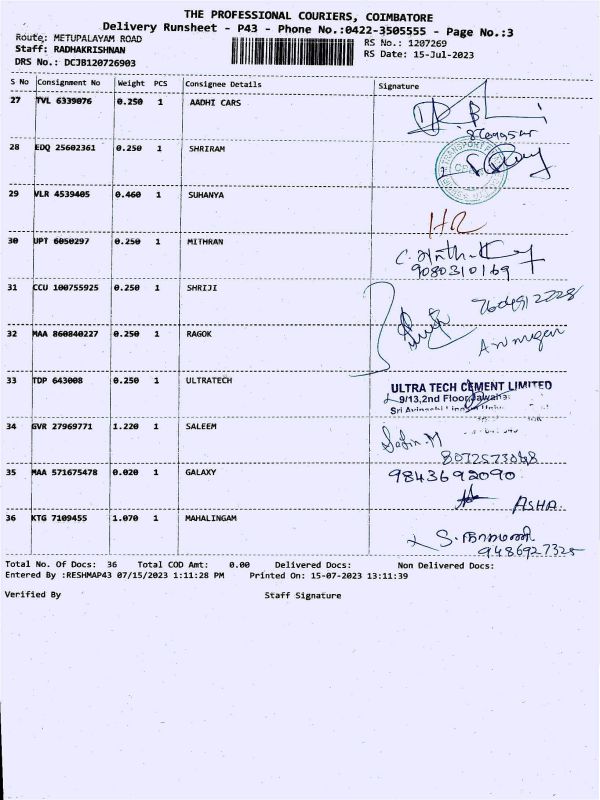 THE PROFESSIONAL COURIERS, COIMBATORE
Delivery Runsheet - P43 - Phone No.:0422-3505555 - Page No.:3
Route: METUPALAYAM ROAD RS No.: 1207269
Staff: RADHAKRISHNAN RS Date: 15-Jul-2023
DRS No.: DCJB120726903
S No Consignment No Weight PCS Consignee Details Signature
27 TVL 6339076 0.250 1 AADHI CARS
28 EDQ 25602361 0.250 1 SHRIRAM
29 VLR 4539405 0.460 1 SUHANYA
HR
30 UPT 6050297 0.250 1 MITHRAN
9080310169
31 CCU 100755925 0.250 1 SHRIJI
32 MAA 860840227 0.250 1 RAGOK
33 TDP 643008 0.250 1 ULTRATECH
ULTRA TECH CEMENT LIMITED
9/13,2nd Floor,Jawahar
34 GVR 27969771 1.220 1 SALEEM
35 MAA 571675478 0.020 1 GALAXY 9843692090
ASHA
36 KTG 7109455 1.070 1 MAHALINGAM
9486927325
Total No. Of Docs: 36 Total COD Amt: 0.00 Delivered Docs: Non Delivered Docs:
Entered By :RESHMAP43 07/15/2023 1:11:28 PM Printed On: 15-07-2023 13:11:39
Verified By Staff Signature